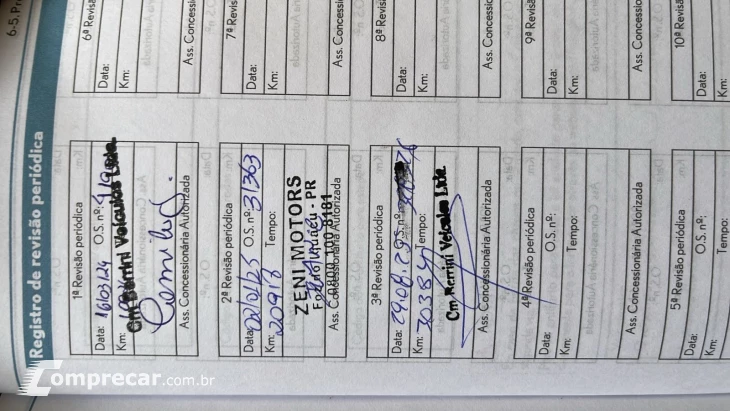 6-5. Pr
Registro de revisão periódica
1ª Revisão periódica
Data: 16/03/24 O.S. nº:
Km:
Cm Berrini Veículos Ltda.
Ass. Concessionária Autorizada
2ª Revisão periódica
Data: O.S. nº: 31363
Km: 20918 Tempo:
ZENI MOTORS
Foz do Iguaçu - PR
0800 100 8181
Ass. Concessionária Autorizada
3ª Revisão periódica
Data: O.S. nº:
Km: 30384 Tempo:
Cm Berrini Veículos Ltda.
Ass. Concessionária Autorizada
4ª Revisão periódica
Data: O.S. nº:
Km: Tempo:
Ass. Concessionária Autorizada
5ª Revisão periódica
Data: O.S. nº:
Km: Tempo:
6ª Revisão
Data:
Km:
Ass. Concessionária
7ª Revisão
Data:
Km:
Ass. Conces
8ª Revisão
Data:
Km:
Ass. Concession
9ª Revisão
Data:
Km:
Ass. Concessionár
10ª Revisão
Data:
Km:
Comprecar.com.br